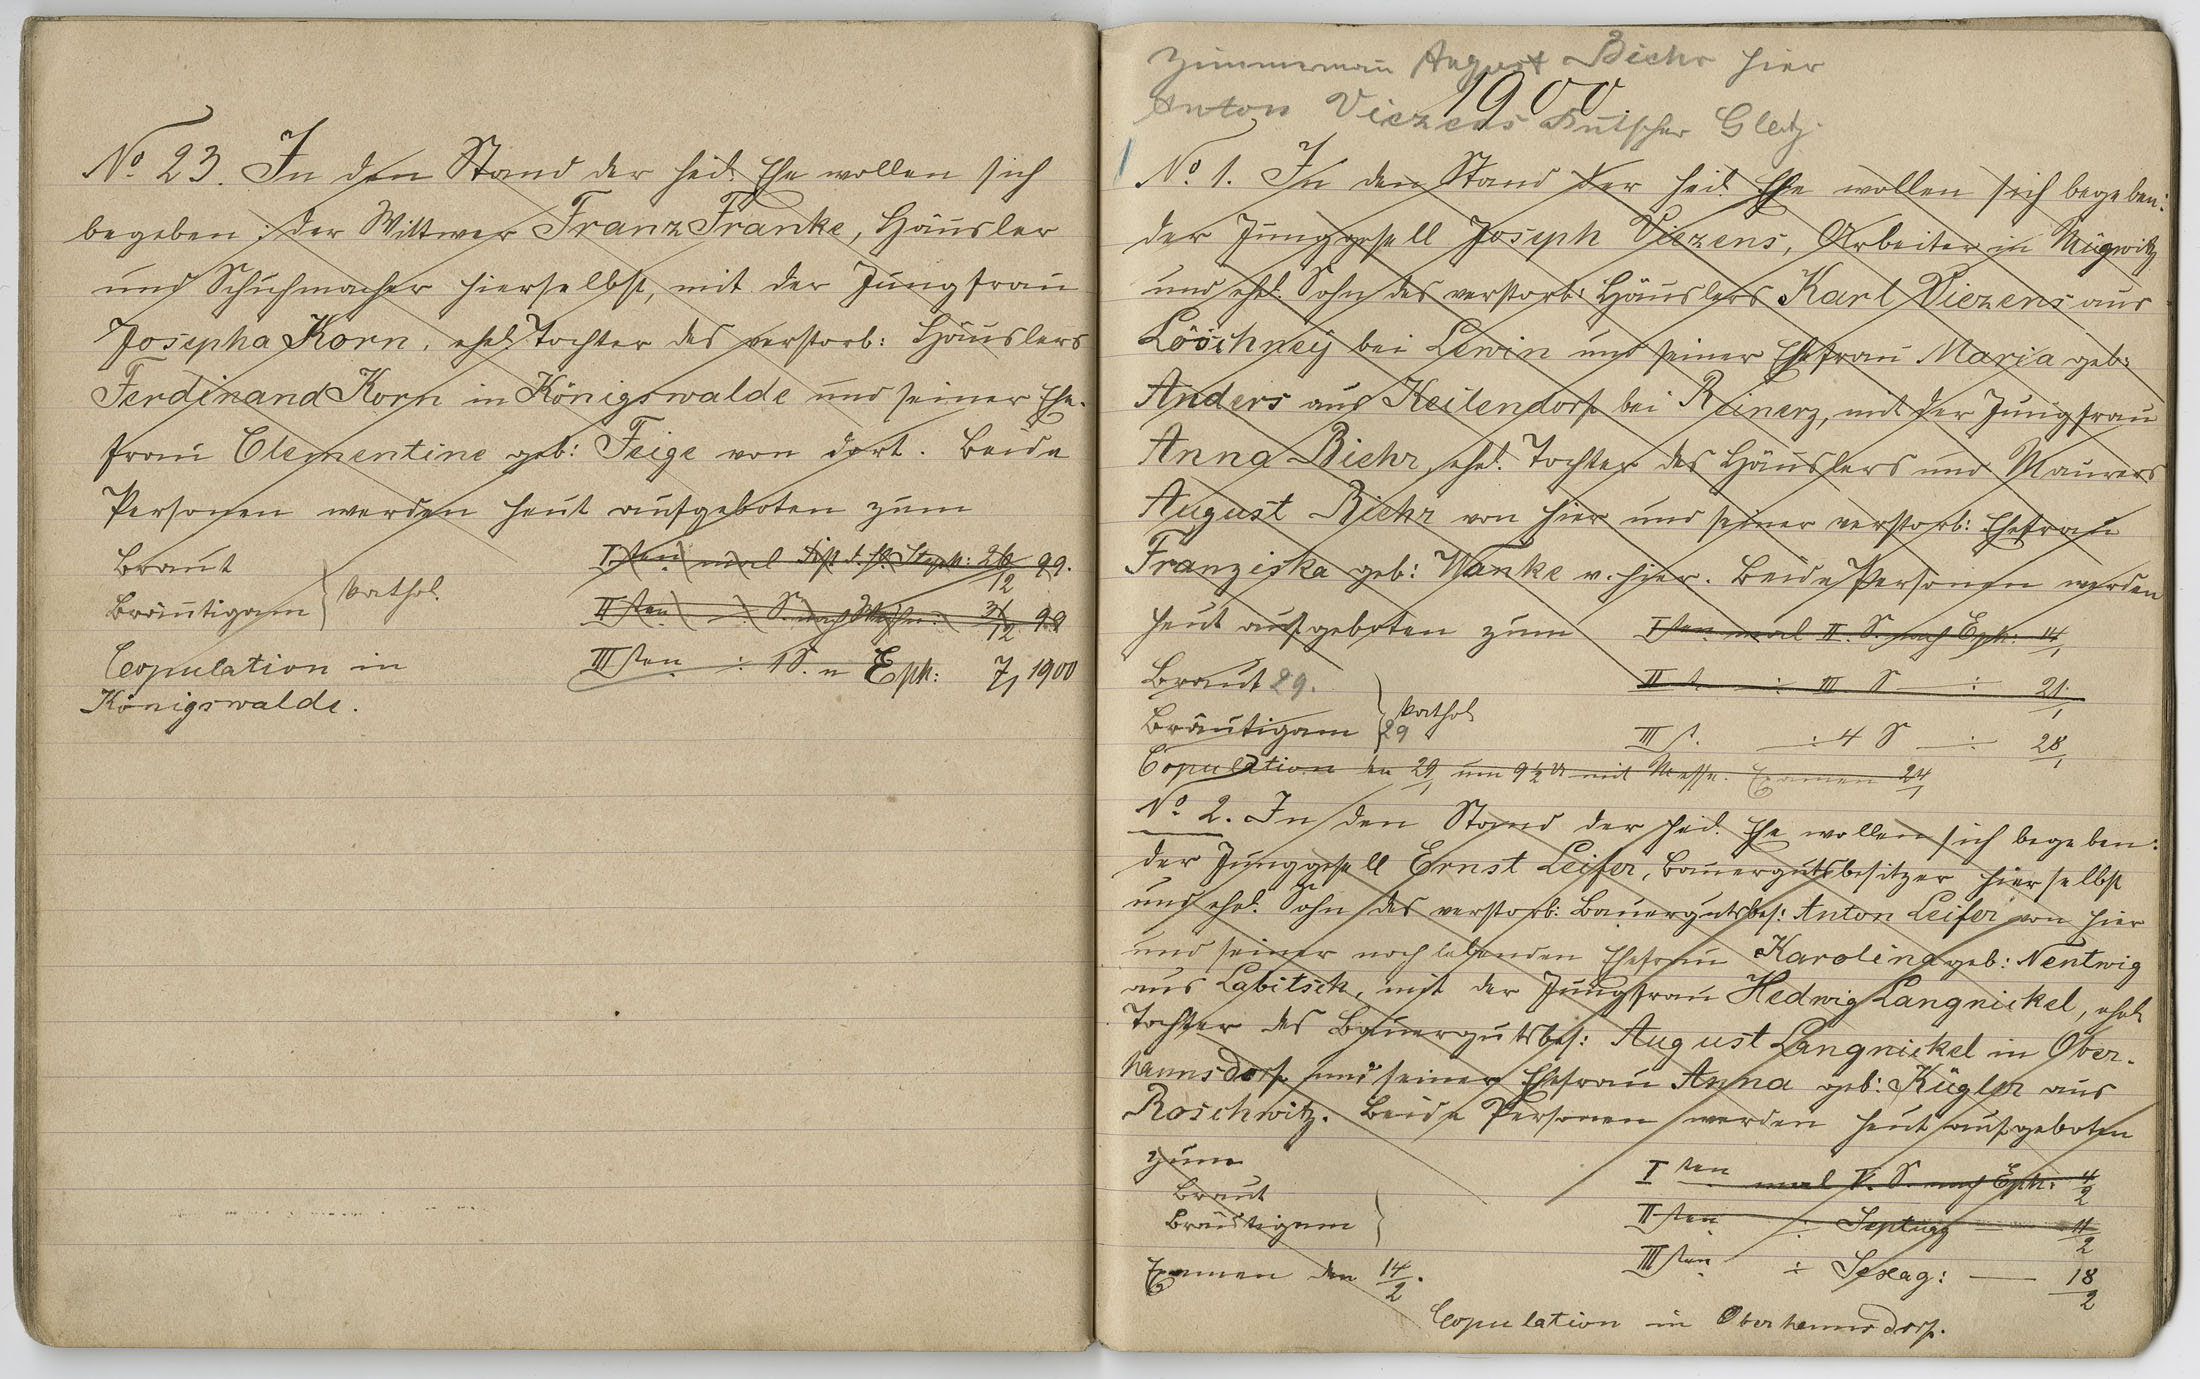 No 23. In den Stand der heil. Ehe wollen sich
begeben: der Wittwer Franz Franke, Häusler
und Schuhmacher hierselbst, mit der Jungfrau
Josepha Korn, ehel. Tochter des verstorb: Häuslers
Ferdinand Korn in Königswalde und seiner Ehe-
frau Clementine geb: Feige von dort. Beide
Personen werden heut aufgeboten zum
Braut
Bräutigam } kathol.
Isten mal Fest d. hl. Steph: 26/12 99.
IIsten : S. nach Weihn: 31/12 99
IIIsten : 1 S. n Eph: 7/1 1900
Copulation in
Königswalde.
Zimmermann August Biehr hier
1900.
Anton Viezens Kutscher Glatz.
No 1. In den Stand der heil. Ehe wollen sich begeben:
der Junggesell Joseph Viezens, Arbeiter in Mügwitz
und ehel. Sohn des verstorb: Häuslers Karl Viezens aus
Löschney bei Lewin und seiner Ehefrau Maria geb:
Anders aus Keilendorf bei Reinerz, mit der Jungfrau
Anna Biehr, ehel. Tochter des Häuslers und Maurers
August Biehr von hier und seiner verstorb: Ehefrau
Franziska geb: Wanke v. hier. Beide Personen werden
heut aufgeboten zum Isten mal II. S. nach Eph: 14/1
Braut 29. II t. : III S : 21/1
Bräutigam 29 } kathol
III t. : 4 S : 28/1
Copulation den 29/1 um 9 1/2 U mit Messe. Examen 24/1
No 2. In den Stand der heil. Ehe wollen sich begeben:
der Junggesell Ernst Leifer, Bauergutsbesitzer hierselbst
und ehel. Sohn des verstorb: Bauergutsbes: Anton Leifer von hier
und seiner noch lebenden Ehefrau Karolina geb: Nentwig
aus Labitsch, mit der Jungfrau Hedwig Langnickel, ehel.
Tochter des Bauergutsbes: August Langnickel in Ober-
hannsdorf und seiner Ehefrau Anna geb: Kügler aus
Roschwitz. Beide Personen werden heut aufgeboten
zum
Isten mal V. S. nach Eph: 4/2
Braut
Bräutigam }
IIsten : Septuag 11/2
IIIsten : Sexag: 18/2
Examen den 14/2.
Copulation in Oberhannsdorf.